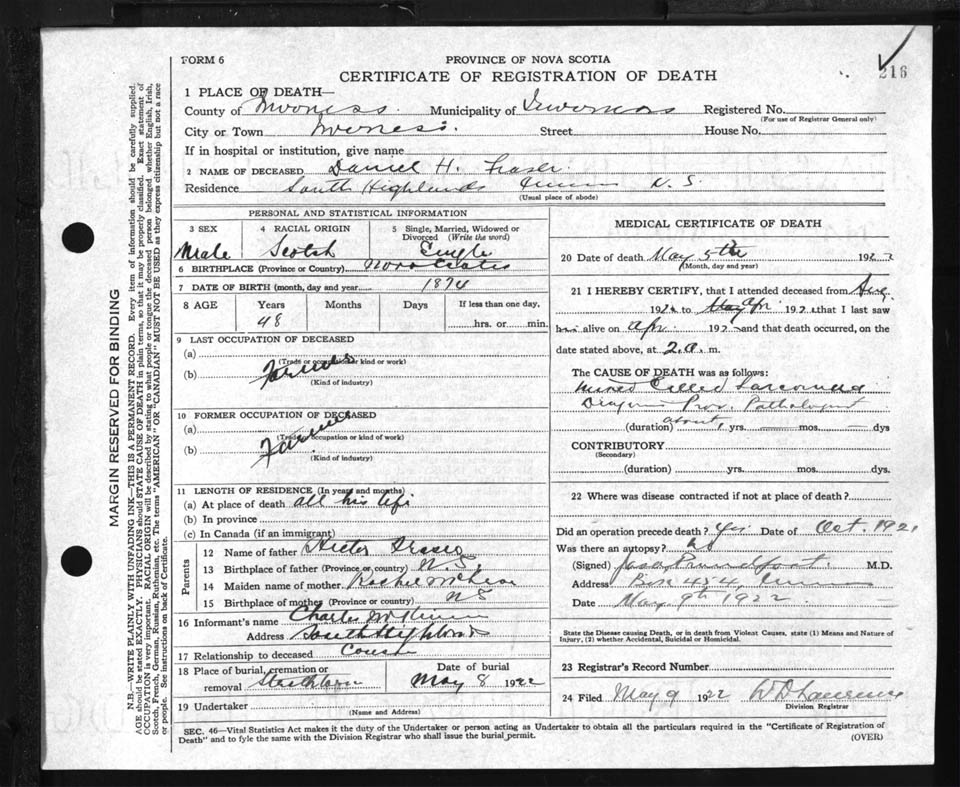 216
FORM 6
PROVINCE OF NOVA SCOTIA
CERTIFICATE OF REGISTRATION OF DEATH
1 PLACE OF DEATH—
County of Inverness. Municipality of Inverness Registered No.
(For use of Registrar General only)
City or Town Inverness. Street House No.
If in hospital or institution, give name
2 NAME OF DECEASED Daniel H. Fraser
Residence South Highlands N. S.
(Usual place of abode)
PERSONAL AND STATISTICAL INFORMATION
3 SEX
Male
4 RACIAL ORIGIN
Scotch
5 Single, Married, Widowed or
Divorced (Write the word)
Single
6 BIRTHPLACE (Province or Country) Nova Scotia
7 DATE OF BIRTH (month, day and year) 1874
8 AGE Years Months Days If less than one day,
48 hrs. or min.
9 LAST OCCUPATION OF DECEASED
(a)
(Trade or occupation or kind or work)
(b) Farmer
(Kind of industry)
10 FORMER OCCUPATION OF DECEASED
(a)
(Trade, occupation or kind of work)
(b) Farmer
(Kind of industry)
11 LENGTH OF RESIDENCE (In years and months)
(a) At place of death all his life
(b) In province
(c) In Canada (if an immigrant)
Parents
12 Name of father Hector Fraser
13 Birthplace of father (Province or country) N. S.
14 Maiden name of mother
15 Birthplace of mother (Province or country) N S
16 Informant's name Charles
Address South Highlands
17 Relationship to deceased Cousin
18 Place of burial, cremation or
removal Strathlorne
Date of burial
May 8 1922
19 Undertaker
(Name and Address)
MEDICAL CERTIFICATE OF DEATH
20 Date of death May 5th 192
(Month, day and year)
21 I HEREBY CERTIFY, that I attended deceased from
192 to Apr 192 that I last saw
h alive on Apr. 192 and that death occurred, on the
date stated above, at 2 a. m.
The CAUSE OF DEATH was as follows:
Mixed Celled Sarcoma
Prov. Pathologist
(duration) about 1 yrs. mos. dys
CONTRIBUTORY
(Secondary)
(duration) yrs. mos. dys.
22 Where was disease contracted if not at place of death?
Did an operation precede death? Yes Date of Oct. 1921
Was there an autopsy?
(Signed) M.D.
Address Box 454,
Date May 9th 1922
State the Disease causing Death, or in death from Violent Causes, state (1) Means and Nature of
Injury, (2) whether Accidental, Suicidal or Homicidal.
23 Registrar's Record Number
24 Filed May 9 1922 W D Lawrence
Division Registrar
SEC. 46—Vital Statistics Act makes it the duty of the Undertaker or person acting as Undertaker to obtain all the particulars required in the "Certificate of Registration of
Death" and to fyle the same with the Division Registrar who shall issue the burial permit.
(OVER)
MARGIN RESERVED FOR BINDING
N.B.—WRITE PLAINLY WITH UNFADING INK—THIS IS A PERMANENT RECORD. Every item of information should be carefully supplied.
AGE should be stated EXACTLY. PHYSICIANS should state CAUSE OF DEATH in plain terms, so that it may be properly classified. Exact statement of
OCCUPATION is very important. RACIAL ORIGIN will be described by stating to what people or tongue the deceased person belonged whether English, Irish,
Scotch, French, German, Russian, Ruthenian, etc. The terms "AMERICAN" OR "CANADIAN" MUST NOT BE USED as they express citizenship but not a race
or people. See instructions on back of Certificate.